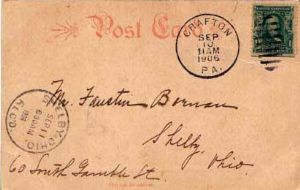 Post Card
CRAFTON
SEP
11 AM
1906
PA.
SHELBY, OHIO.
SEP 11
REC'D.
Mr. Faustin
Shelby,
Ohio.
60 South Gamble St.